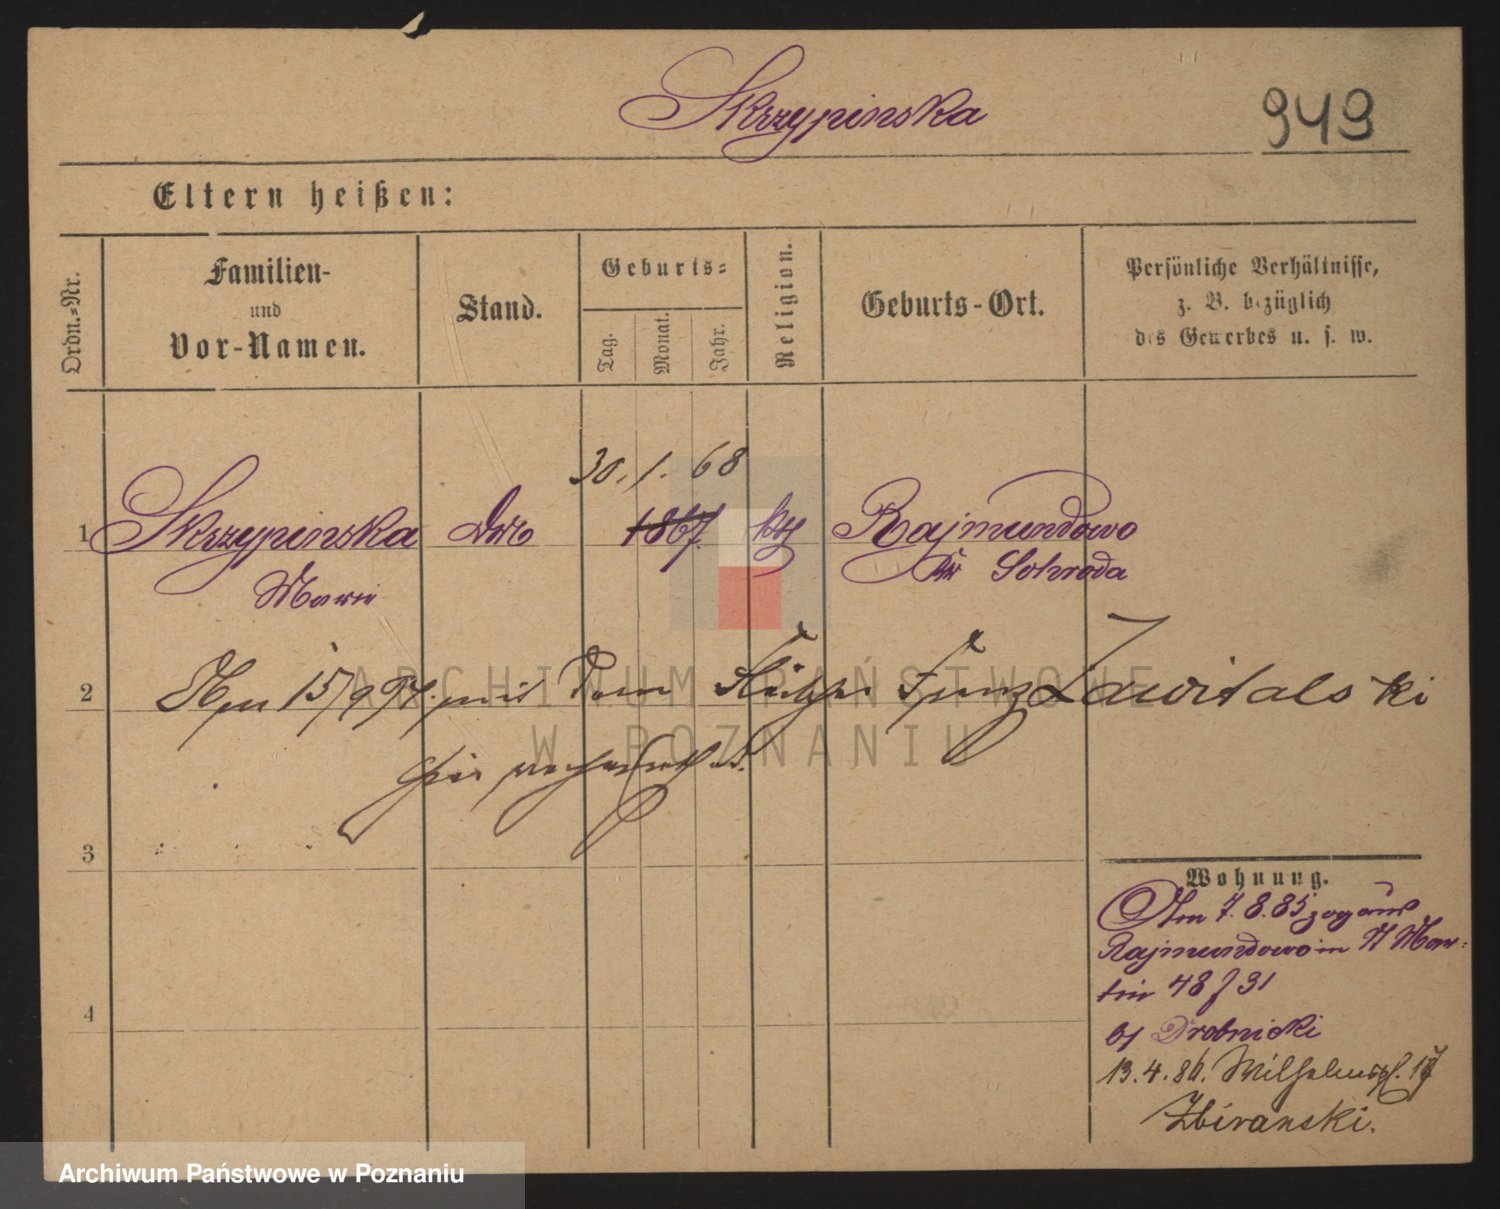 Skrzypinska
949
Eltern heißen:
Ordn.-Nr.
Familien-
und
Vor-Namen.
Stand.
Geburts-
Tag.
Monat.
Jahr.
Religion.
Geburts-Ort.
Persönliche Verhältnisse,
z. B. bezüglich
des Gewerbes u. s. w.
30. 1. 68
1 Skrzypinska 1867. kth Rajmundowo
Marie Kr Schroda
2 15/9 mit dem Franz Zawitalski
hier verheirathet.
3
4
Wohnung.
Am 7. 8. 85 zog aus
Rajmundowo in St Mar-
tin 48 f 31
bj Drobnicki
13. 4. 86. Wilhelmspl. 17
Zbiranski.
ARCHIWUM PAŃSTWOWE
W POZNANIU
Archiwum Państwowe w Poznaniu